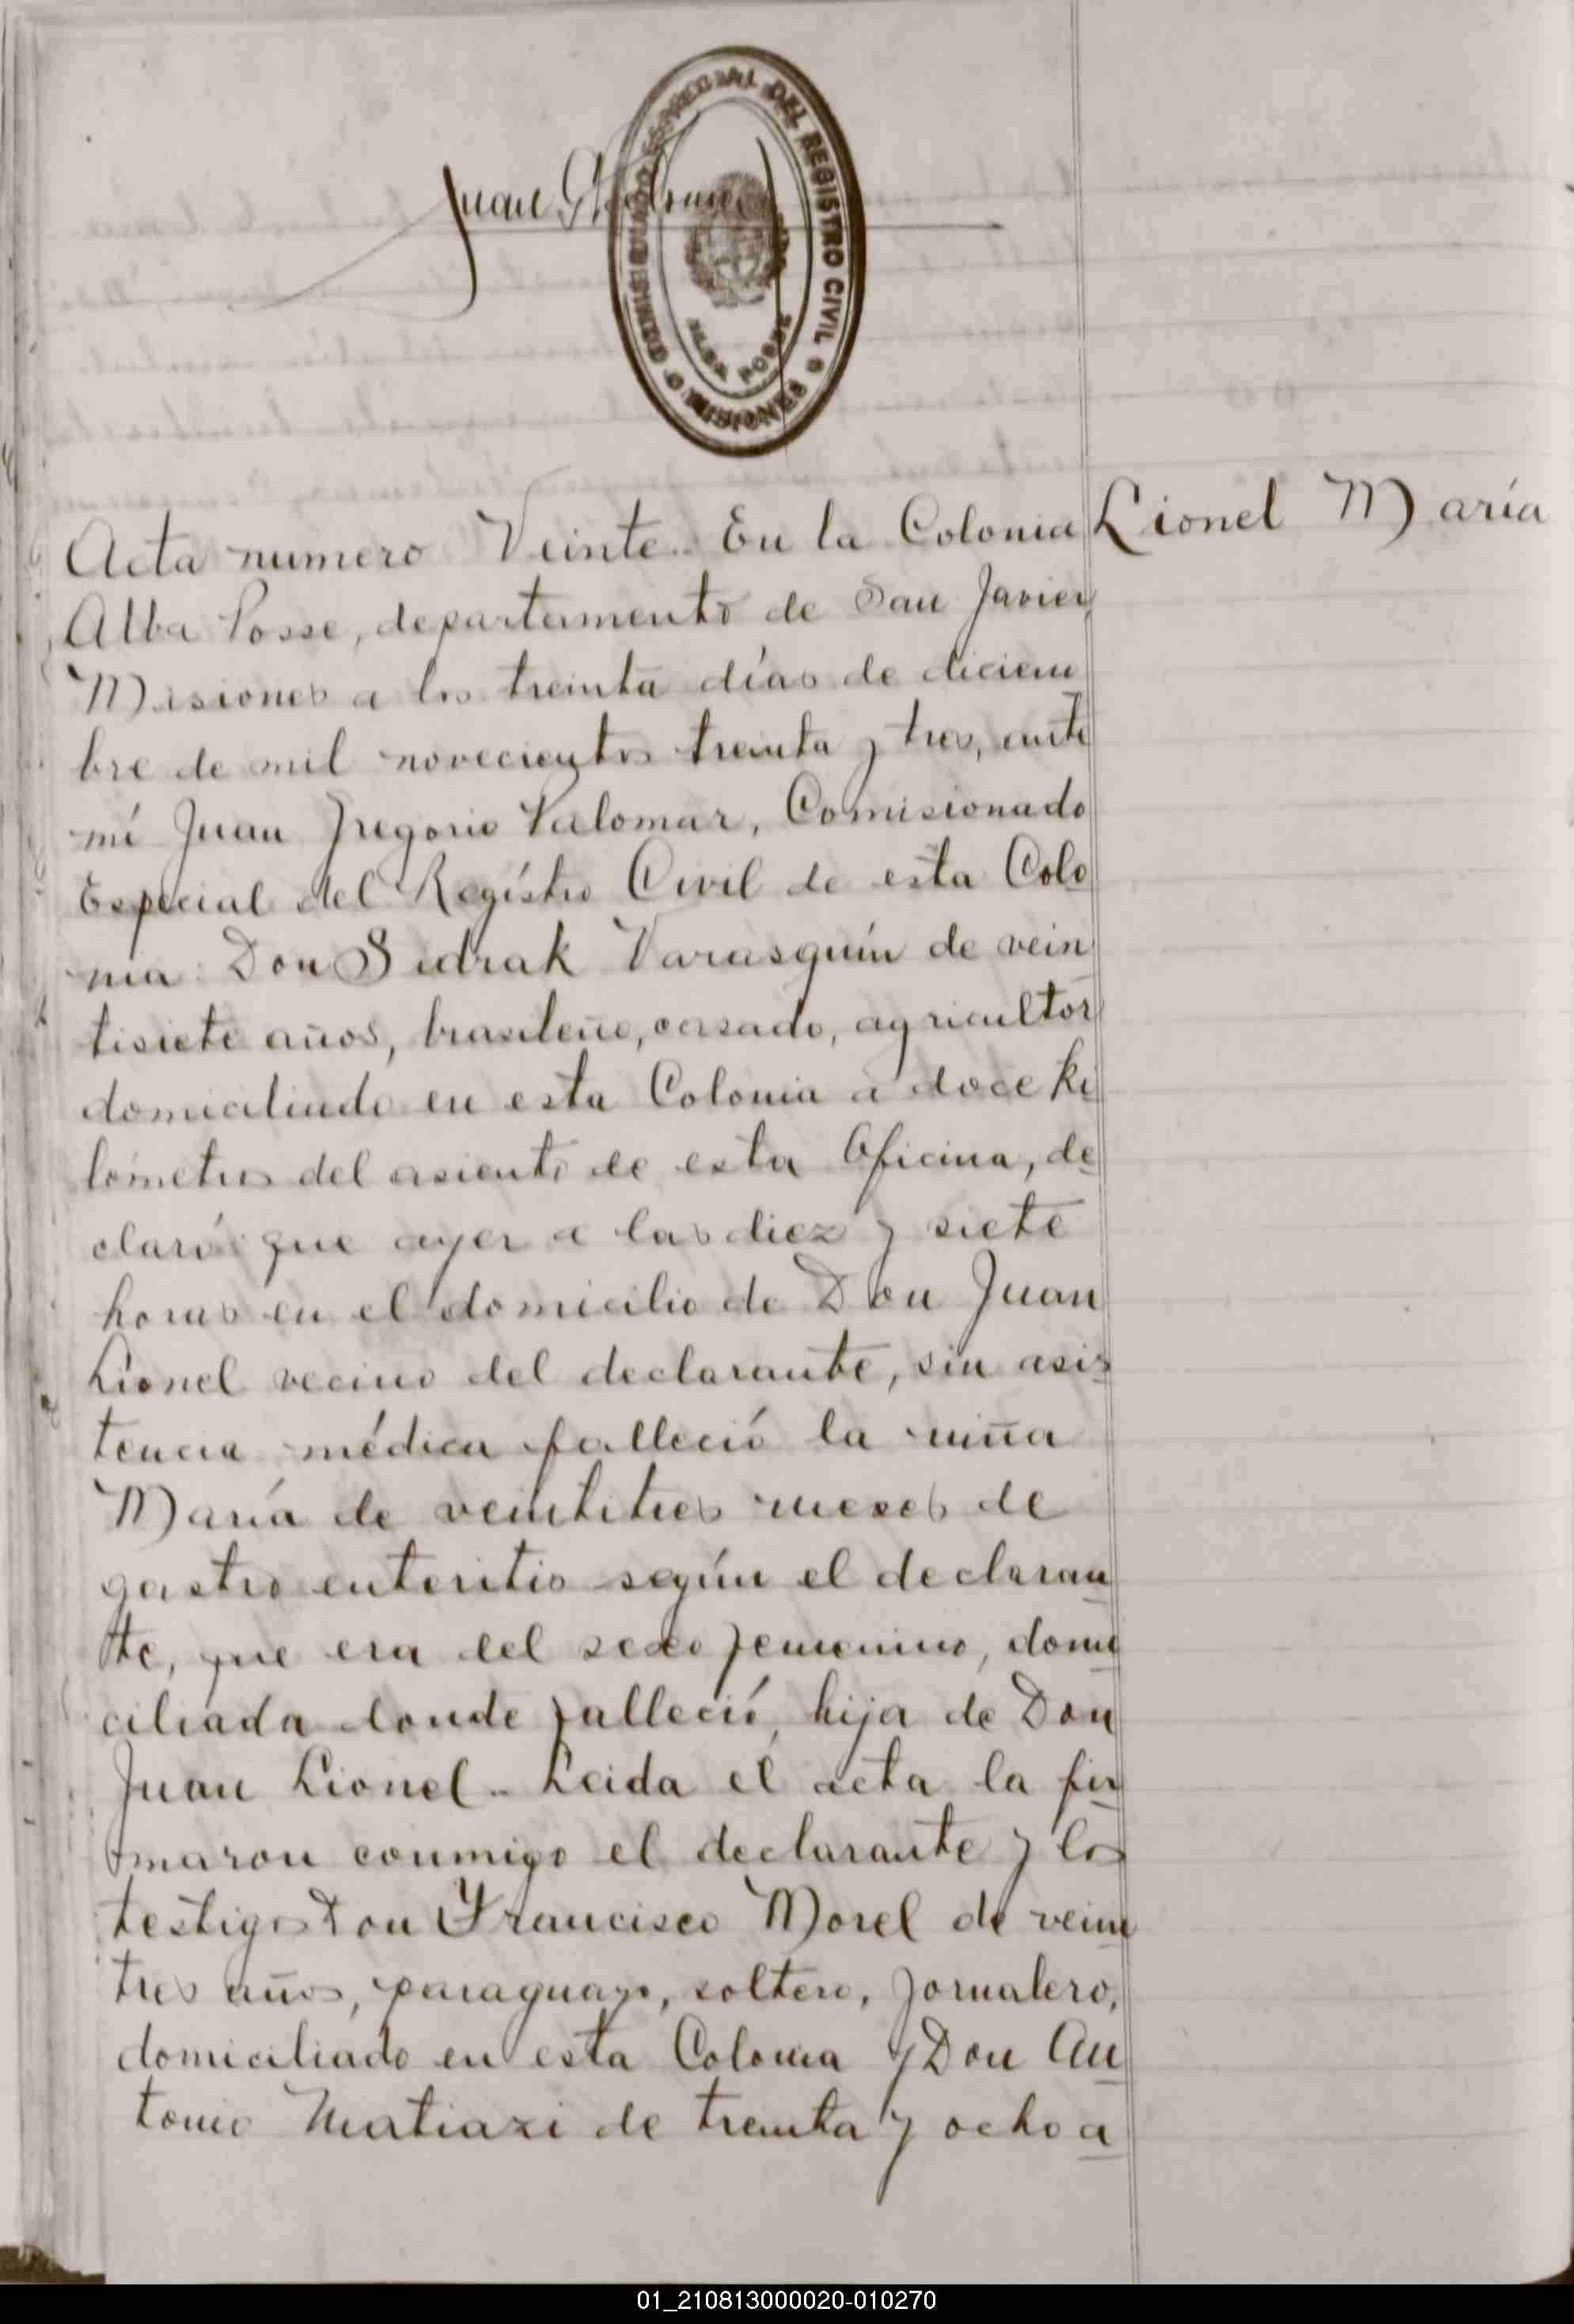 Juan G Palomar
COMISIONADO ESPECIAL DEL REGISTRO CIVIL
ALBA POSSE
MISIONES
Lionel María
Acta numero Veinte.. En la Colonia
Alba Posse, departamento de San Javier,
Misiones a los treinta días de diciem
bre de mil novecientos treinta y tres, ante
mí Juan Gregorio Palomar, Comisionado
Especial del Regístro Civil de esta Colo
nia: Don Sidrak Varasquín de vein
tisiete años, brasileño, casado, agricultor
domiciliado en esta Colonia a doce ki
lómetros del asiento de esta Oficina, de
claró: que ayer a las diez y siete
horas en el domicilio de Don Juan
Lionel vecino del declarante, sin asis
tencia médica falleció la niña
María de veintitres meses de
gastro enteritis según el declaran
te, que era del sexo femenino, domi
ciliada donde falleció, hija de Don
Juan Lionel.. Leida el acta la fir
maron conmigo el declarante y los
testigos Don Francisco Morel de vein
tres años, paraguayo, soltero, jornalero,
domiciliado en esta Colonia y Don An
tonio Matiazi de treinta y ocho a
01_210813000020-010270